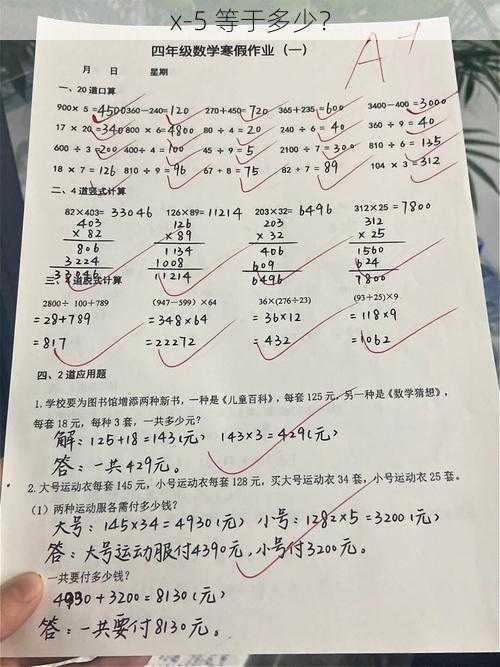 x-5 等于多少？
四年级数学寒假作业（一）
A+
月 日 星期
一、20道口算
900× 5 =4500 360−240=120 270+450=720 365+235=600 3400−400=3000
17 × 20=340 800 × 6=4800 80 ÷ 4 =20 240 ÷ 6 = 40 360 ÷ 9 = 40
600 ÷ 3 =200 400÷ 4 = 100 45 ÷ 9 = 5 2100 ÷ 7 = 300 810 ÷ 6 = 135
18 × 7 = 126 810 ÷ 9 = 96 67 + 8 = 75 82 + 7 = 89 104 × 3 = 312
二、4道竖式计算
82×403= 33046 126×89= 11214 203×32= 6496 312×25 = 7800
403 126 203 312
× 82 × 89 × 32 × 25
806 1134 406 1560
3224 1008 609 624
33046 11214 6496 7800
三、4道脱式计算
2800÷ 100+789 (947−599) ×64 36×(276÷23) (93+25)×9
=28+789 =348×64 =36×12 =118×9
=817 =22272 =432 =1062
四、2道应用题
1.学校要为图书馆增添两种新书，一种是《儿童百科》，每套125元，另一种是《数学猜想》，
每套18元，每种3套，一共多少元？
解：125+18=143(元) 143×3=429(元)
答：一共429元。
2.大号运动衣每套145元，小号运动衣每套128元，买大号运动衣34套，小号运动衣25套。
（1）两种运动服各需付多少钱？
大号：145×34=4930(元) 小号：1282×5=3200(元)
答：大号运动服付4390元，小号付3200元。
一共要付多少钱？
4930+3200=8130(元)
答：一共要付8130元。